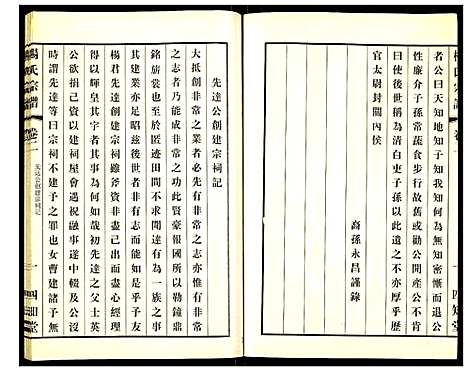 楊氏宗譜 卷二
者公曰天知地知子知我知何為無知密慚而退公
性廉介子孫常蔬食步行故舊或勸公開產公不
曰使後世稱為清白吏子孫以此遺之不亦厚乎歷
官太尉封關內侯
裔孫永昌謹錄
四知堂
先達公創建宗祠記
大抵創非常之業者必先有非常之志亦惟有非常
之志者乃能成非常之功此賢豪報國所以勒鐘鼎
銘旂裳也至於匿迹田間不求聞達有為一族之事
其建業亦至而昭茲後者志而能如是乎予友
楊君先達創建宗祠雖斧資非盡己出而盡心經理
得以輝皇其宇者其志為如何哉初先達之父士英
公欲捐己資構祠屋會遇祝融事遂中輟及公沒
時謂先達等曰宗祠不建予之罪也女曹建諸予無
楊氏宗譜 卷二 先達公創建宗祠記 一 四知堂